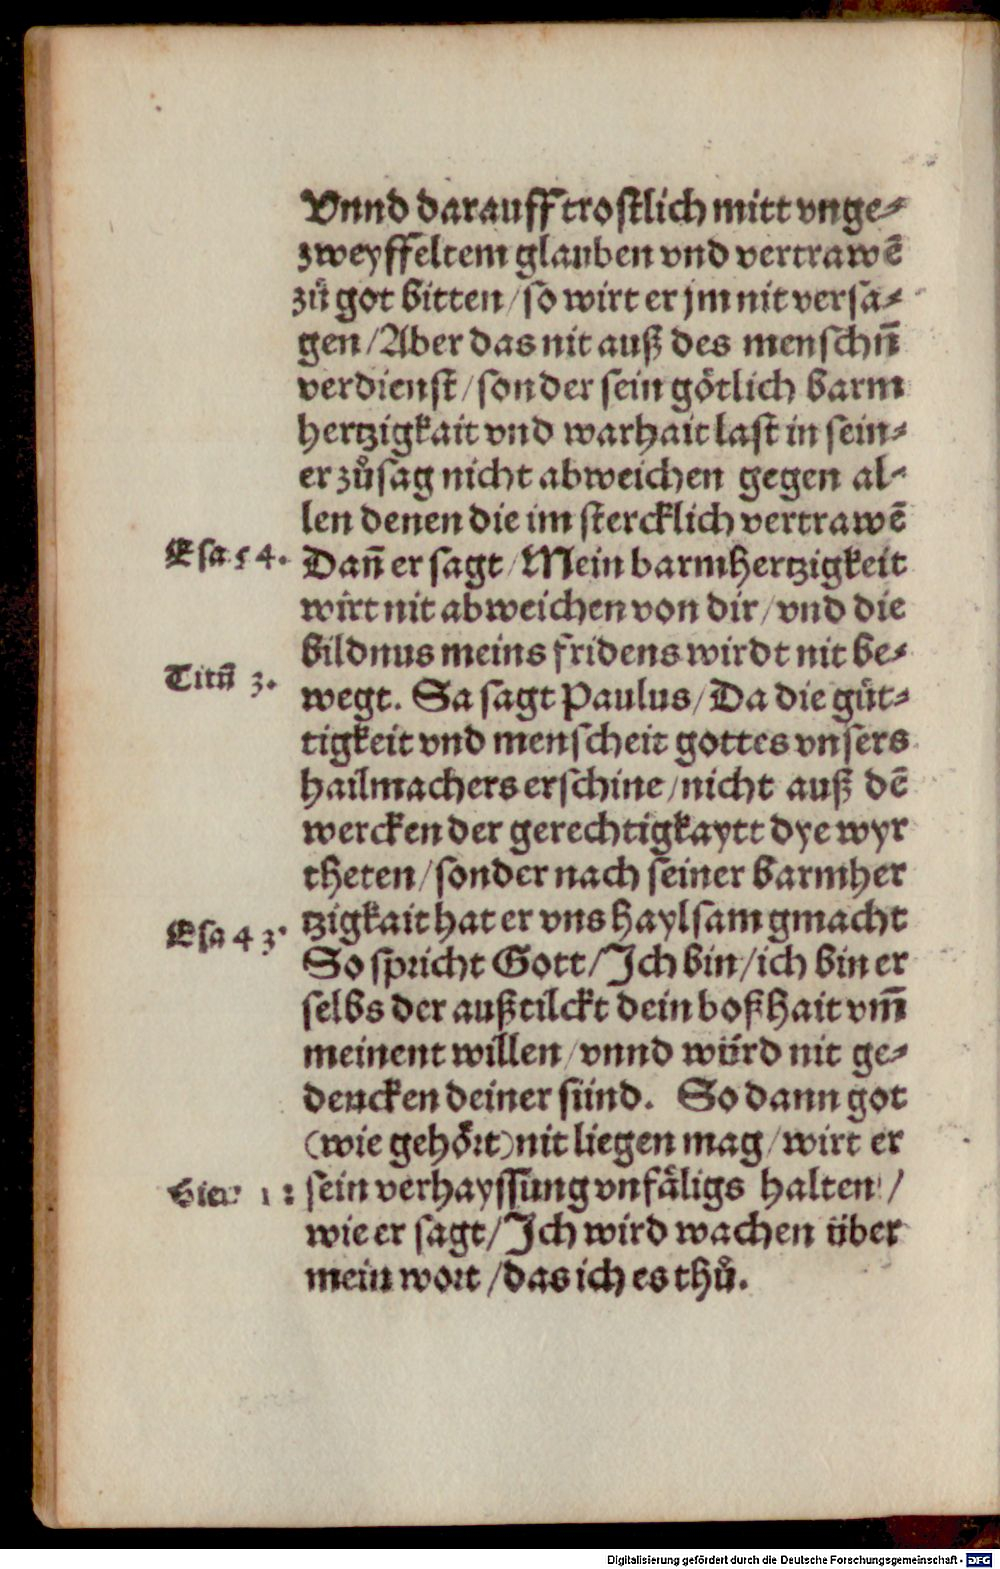 Vnnd darauff trostlich mitt vnge⸗
zweyffeltem glauben vnd vertrawē
zů got bitten/so wirt er jm nit versa⸗
gen/Aber das nit auß des menschn̄
verdienst/sonder sein götlich barm
hertzigkait vnd warhait last in sein⸗
er zůsag nicht abweichen gegen al⸗
len denen die im stercklich vertrawē
Esa 54.
Dañ er sagt/Mein barmhertzigkeit
wirt nit abweichen von dir/vnd die
bildnus meins fridens wirdt nit be⸗
Titū 3.
wegt. Sa sagt Paulus/Da die güt⸗
tigkeit vnd menscheit gottes vnsers
hailmachers erschine/nicht auß dē
wercken der gerechtigkaytt dye wyr
theten/sonder nach seiner barmher
tzigkait hat er vns haylsam gmacht
Esa 43.
So spricht Gott/Ich bin/ich bin er
selbs der außtilckt dein boßhait vm̄
meinent willen/vnnd würd nit ge⸗
dencken deiner sünd. So dann got
(wie gehört)nit liegen mag/wirt er
Hier. 1:
sein verhayssung vnfäligs halten/
wie er sagt/Ich wird wachen über
mein wort/das ich es thů.
Digitalisierung gefördert durch die Deutsche Forschungsgemeinschaft - DFG